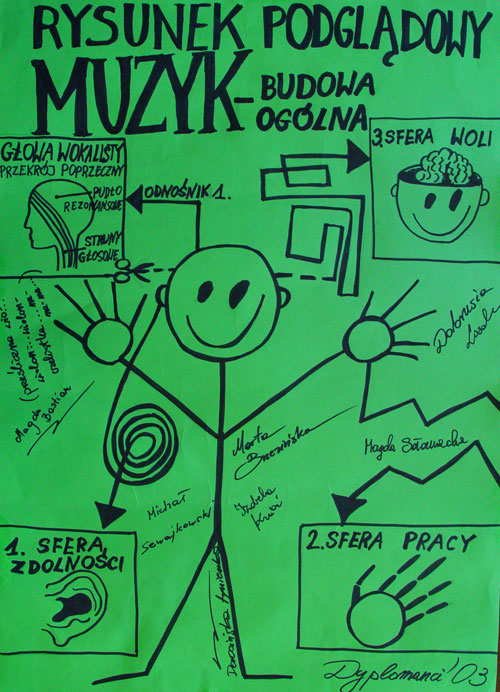 RYSUNEK PODGLĄDOWY
MUZYK-BUDOWA
OGÓLNA
GŁOWA WOKALISTY
PRZEKRÓJ POPRZECZNY
PUDŁO
REZONANSOWE
STRUNY
GŁOSOWE
ODNOŚNIK 1.
3. SFERA WOLI
Magda
Bastian
Marta
Brzezińska
Magda
Michał
Izabela
1. SFERA
ZDOLNOŚCI
2. SFERA PRACY
Dyplomanci '03